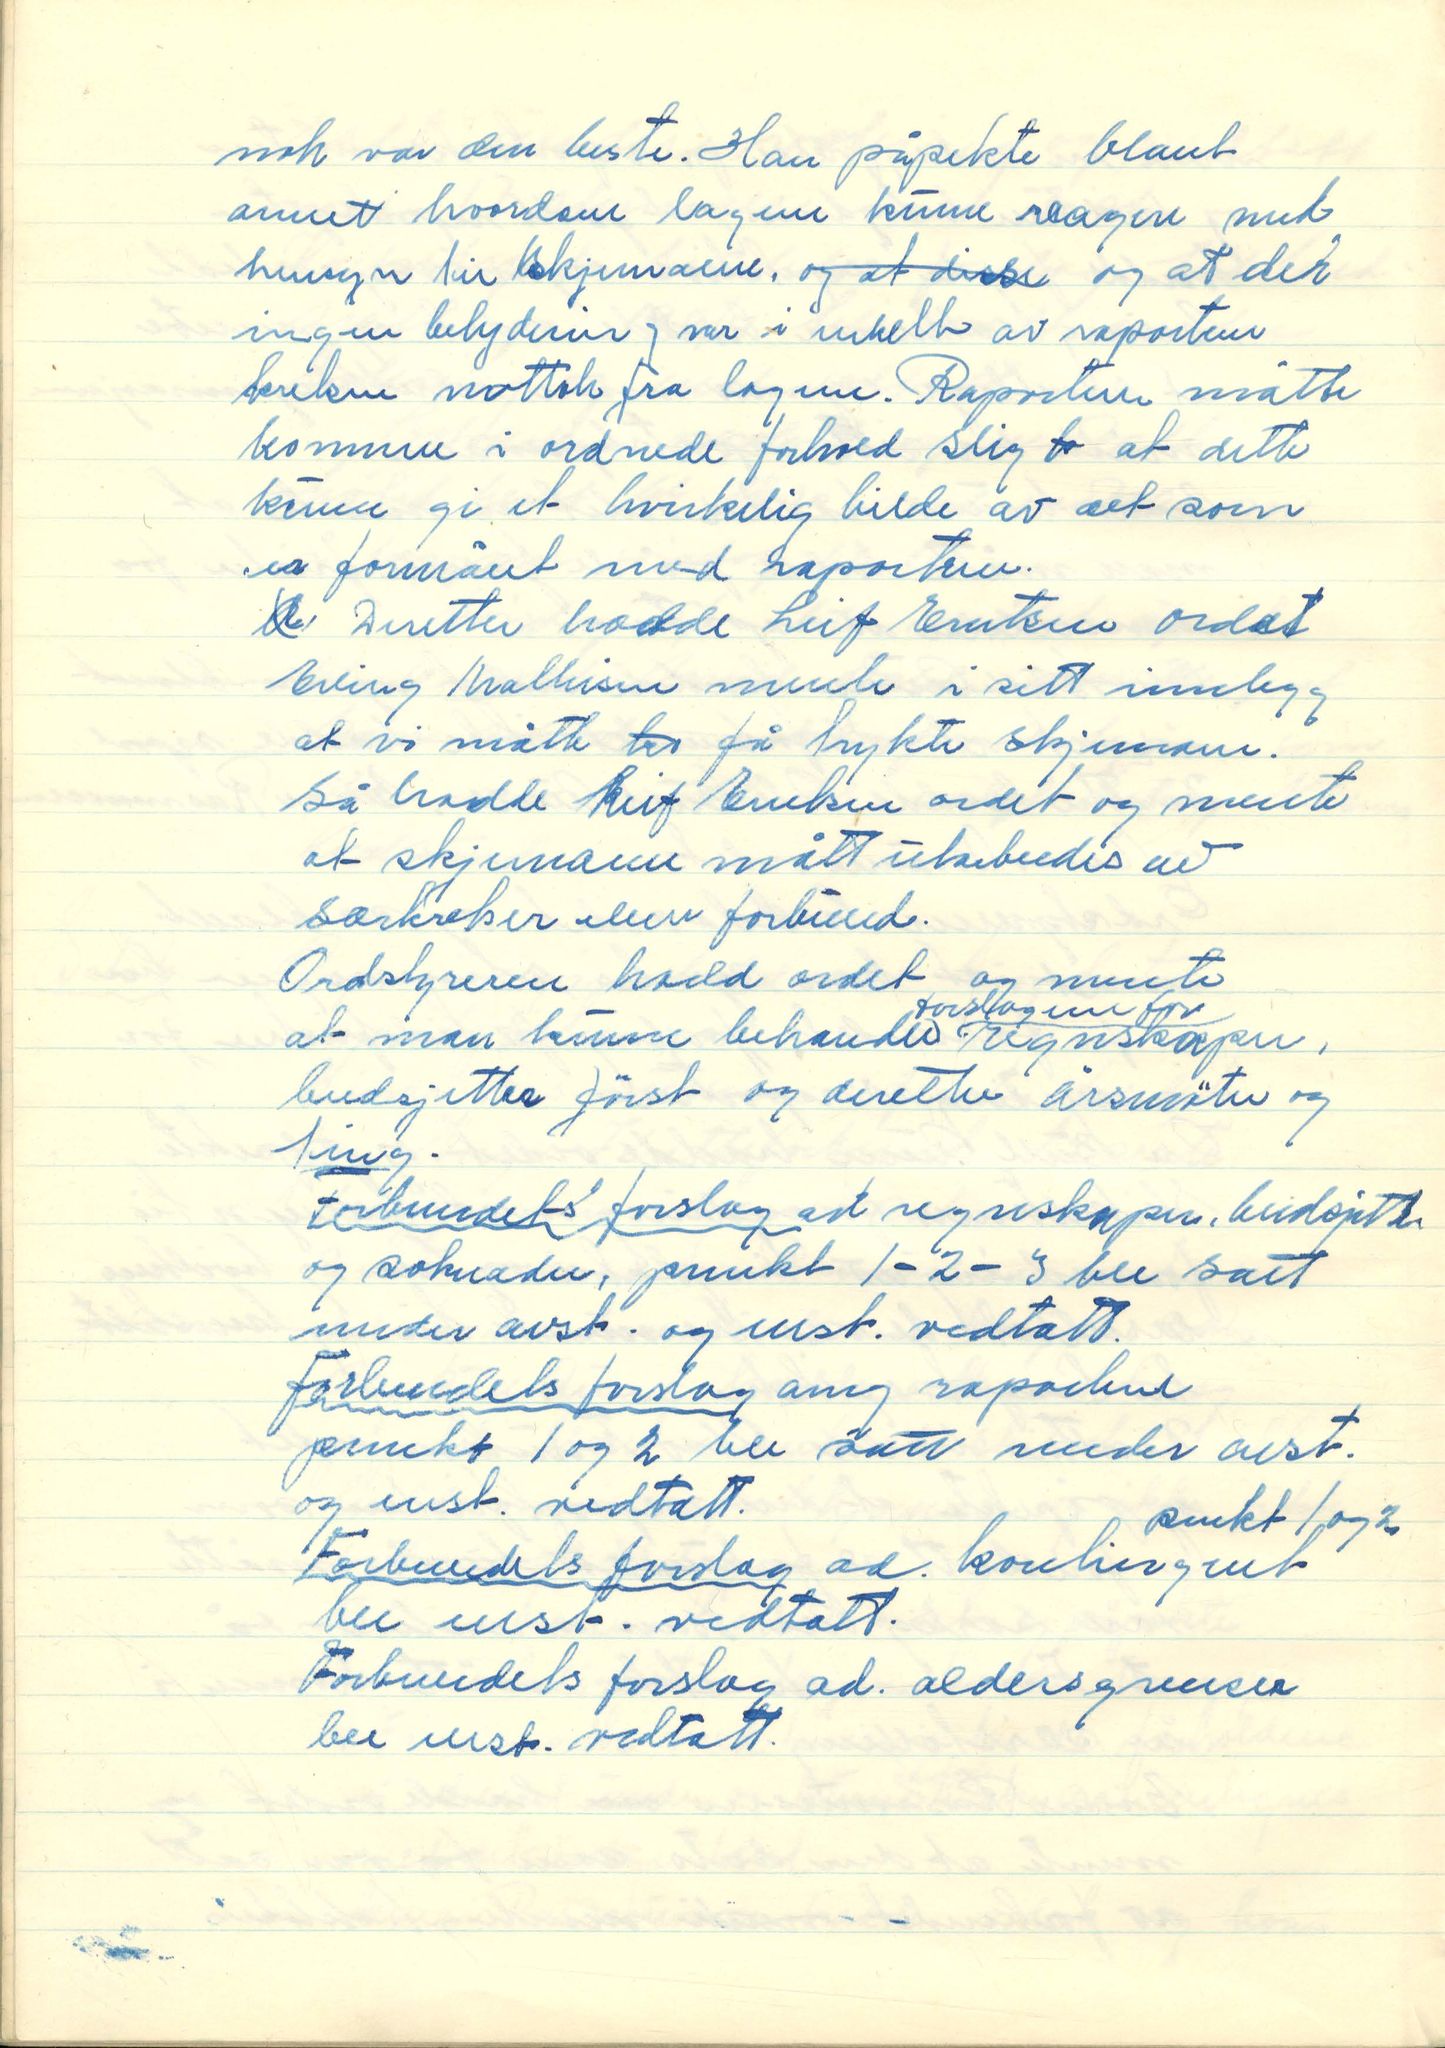 nok var den beste. Han påpekte blant
annet hvordan lagene kunne reagere med
hensyn til skjemaene, og at disse og at der
ingen betydning var i enkelte av raportene
kretsen mottok fra lagene. Raportene måtte
komme i ordnede forhold slig at dette
kunne gi et hvirkelig bilde av det som
er formånt med raportene.
Deretter hadde Leif Eriksen ordet
Erling Mathisen mente i sitt innlegg
at vi måtte få trykte skjemaer.
Så hadde Leif Eriksen ordet og mente
at skjemaene mått utarbeides av
særkretser eller forbund.
Ordstyreren hadd ordet og mente
forslagene for
at man kunne behandle regnskaper,
budsjetter først og deretter årsmøter og
ting.
Forbundets forslag ad regnskaper, budsjetter
og søknader, punkt 1-2-3 ble satt
under avst. og enst. vedtatt.
Forbundets forslag ang raportene
punkt 1 og 2 ble satt under avst.
og enst. vedtatt.
punkt 1 og 2
Forbundets forslag ad. kontingent
ble enst. vedtatt.
Forbundets forslag ad. aldersgrenser
ble enst. vedtatt.